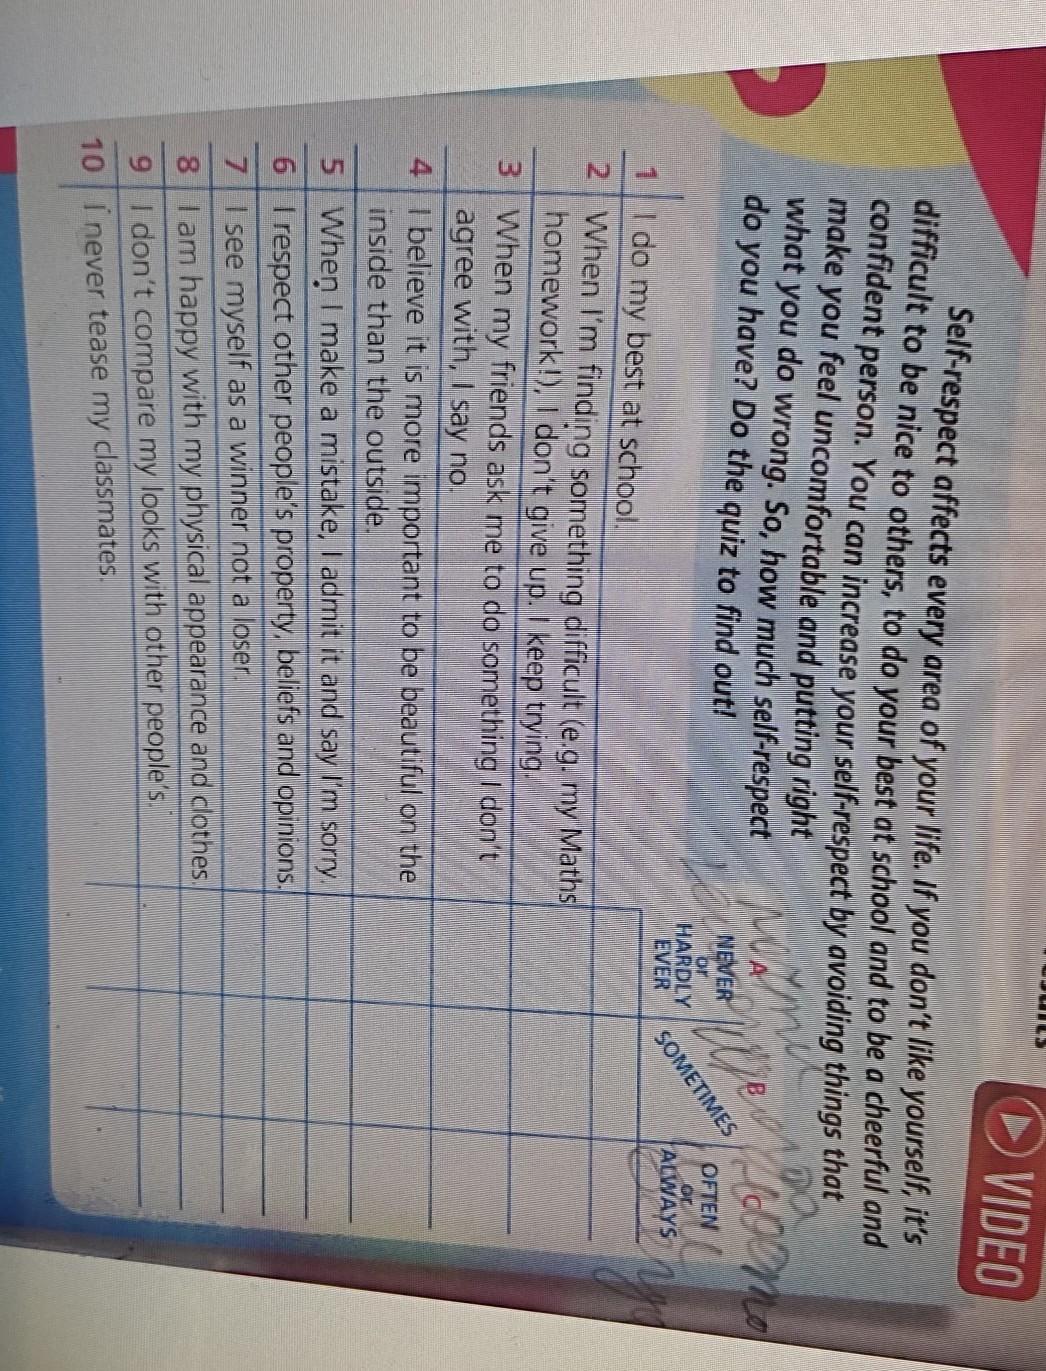 VIDEO
Self-respect affects every area of your life. If you don't like yourself, it's
difficult to be nice to others, to do your best at school and to be a cheerful and
confident person. You can increase your self-respect by avoiding things that
make you feel uncomfortable and putting right
what you do wrong. So, how much self-respect
do you have? Do the quiz to find out!
A B C
NEVER or HARDLY EVER SOMETIMES OFTEN or ALWAYS
1 I do my best at school.
2 When I'm finding something difficult (e.g. my Maths
homework!), I don't give up. I keep trying.
3 When my friends ask me to do something I don't
agree with, I say no.
4 I believe it is more important to be beautiful on the
inside than the outside.
5 When I make a mistake, I admit it and say I'm sorry.
6 I respect other people's property, beliefs and opinions.
7 I see myself as a winner not a loser.
8 I am happy with my physical appearance and clothes.
9 I don't compare my looks with other people's.
10 I never tease my classmates.